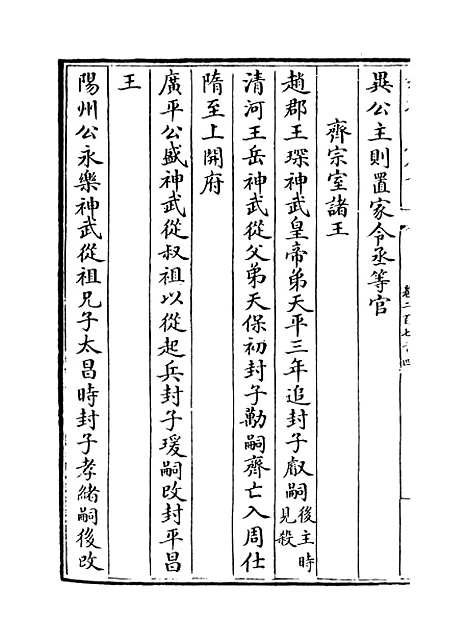 異公主則置家令丞等官
齊宗室諸王
趙郡王琛神武皇帝弟天平三年追封子叡嗣後主時見殺
清河王岳神武從父弟天保初封子勱嗣齊亡入周仕
隋至上開府
廣平公盛神武從叔祖以從起兵封子瑗嗣改封平昌
王
陽州公永樂神武從祖兄子太昌時封子孝緒嗣後改
卷二百七十四